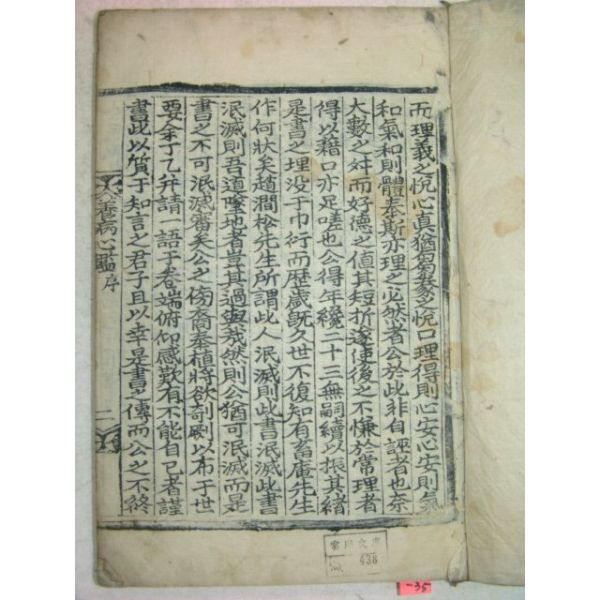 而理義之悅心真猶芻豢之悅口理得則心安心安則氣
和氣和則體泰斯亦理之必然者公於此非自誣者也奈
大數之舛而好德之值其短折遂使後之不慊於常理者
得以藉口亦足嗟也公得年纔二十三無嗣續以振其緖
是書之埋没于巾衍而歷歲旣久世不復知有畜庵先生
作何狀矣趙澗松先生所謂此人泯滅則此書泯滅此書
泯滅則吾道墜地者豈其過與哉然則公猶可泯滅而是
書之不可泯滅審矣公之傍裔秦植將欲剞劂以布于世
要余丁乙弁請一語于卷端俯仰感歎有不能自已者謹
書此以質于知言之君子且以幸是書之傳而公之不終
養病心鑑序
二
438
-35